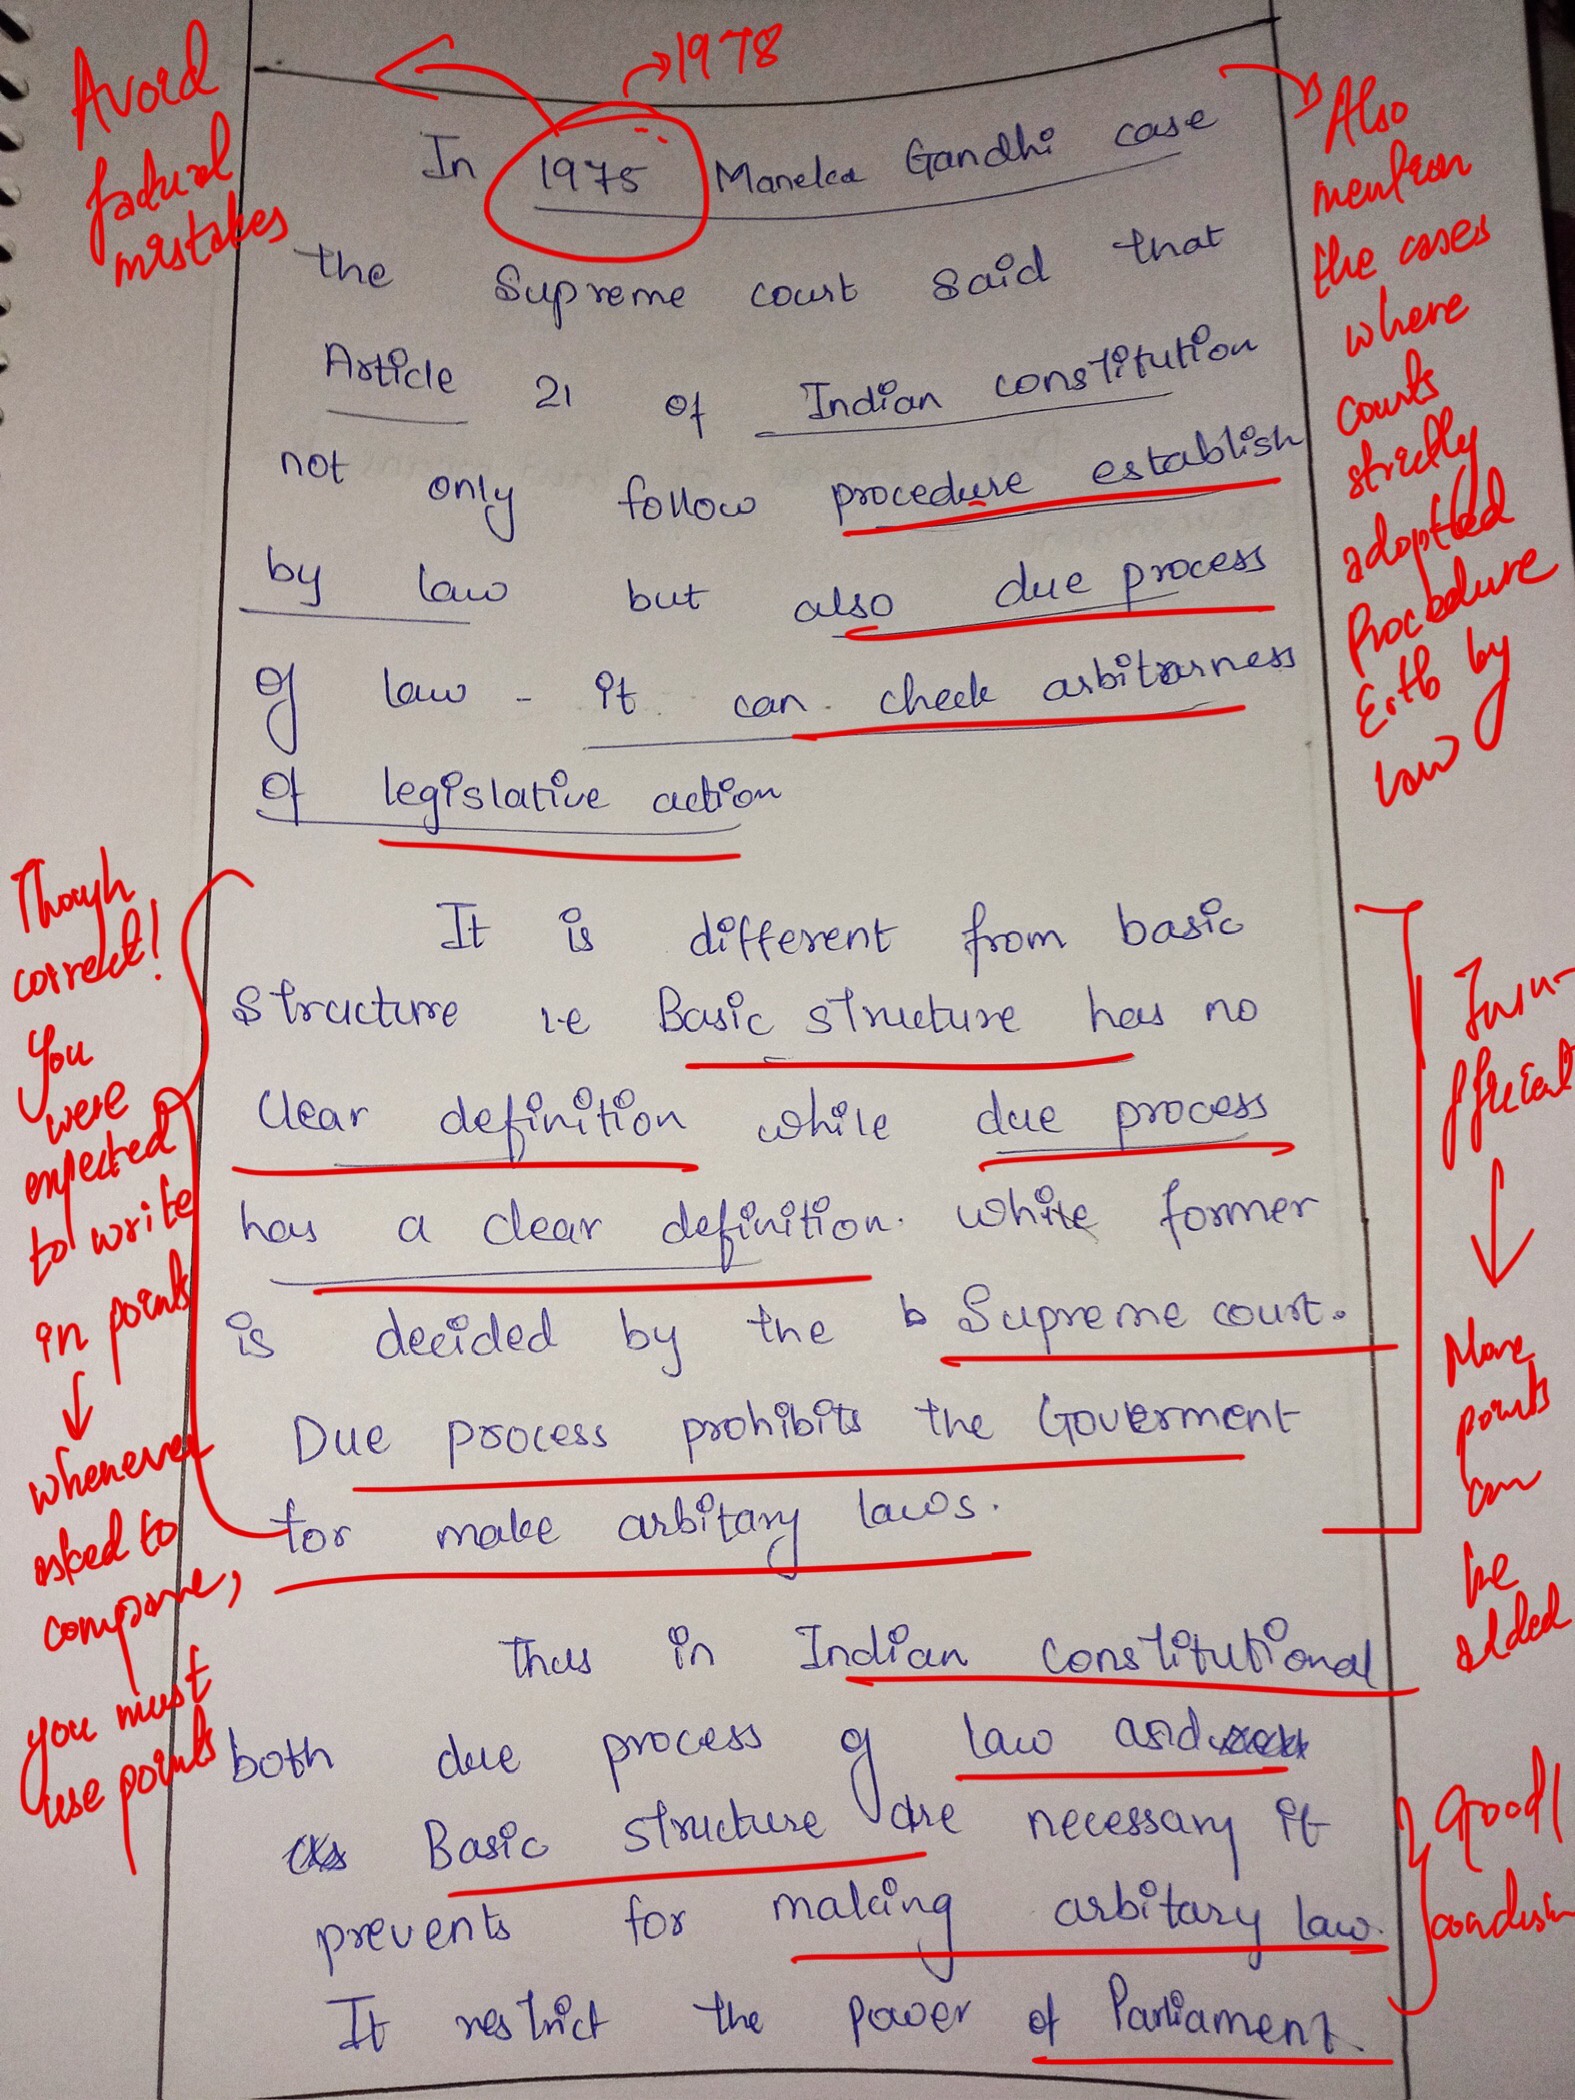 →1978
Avoid
factual
mistakes
In 1975 Maneka Gandhi case
the Supreme court said that
Article 21 of Indian constitution
not only follow procedure establish
by law but also due process
of law - it can check arbitrarness
of legislative action
Also
mention
the cases
where
courts
strictly
adopted
Procedure
Estb by
law
It is different from basic
Structure i.e Basic structure has no
Clear definition while due process
has a clear definition. While former
is decided by the b Supreme court.
Due process prohibits the Goverment
for make arbitary laws.
Though
correct!
You
were
expected
to write
in points
↓
whenever
asked to
compare,
you must
use points
Insu-
fficient
↓
More
points
can
be
added
Thus in Indian Constitutional
both due process of law and
as Basic structure are necessary it
prevents for making arbitary law.
It restrict the power of Parliament.
Good
conclusion